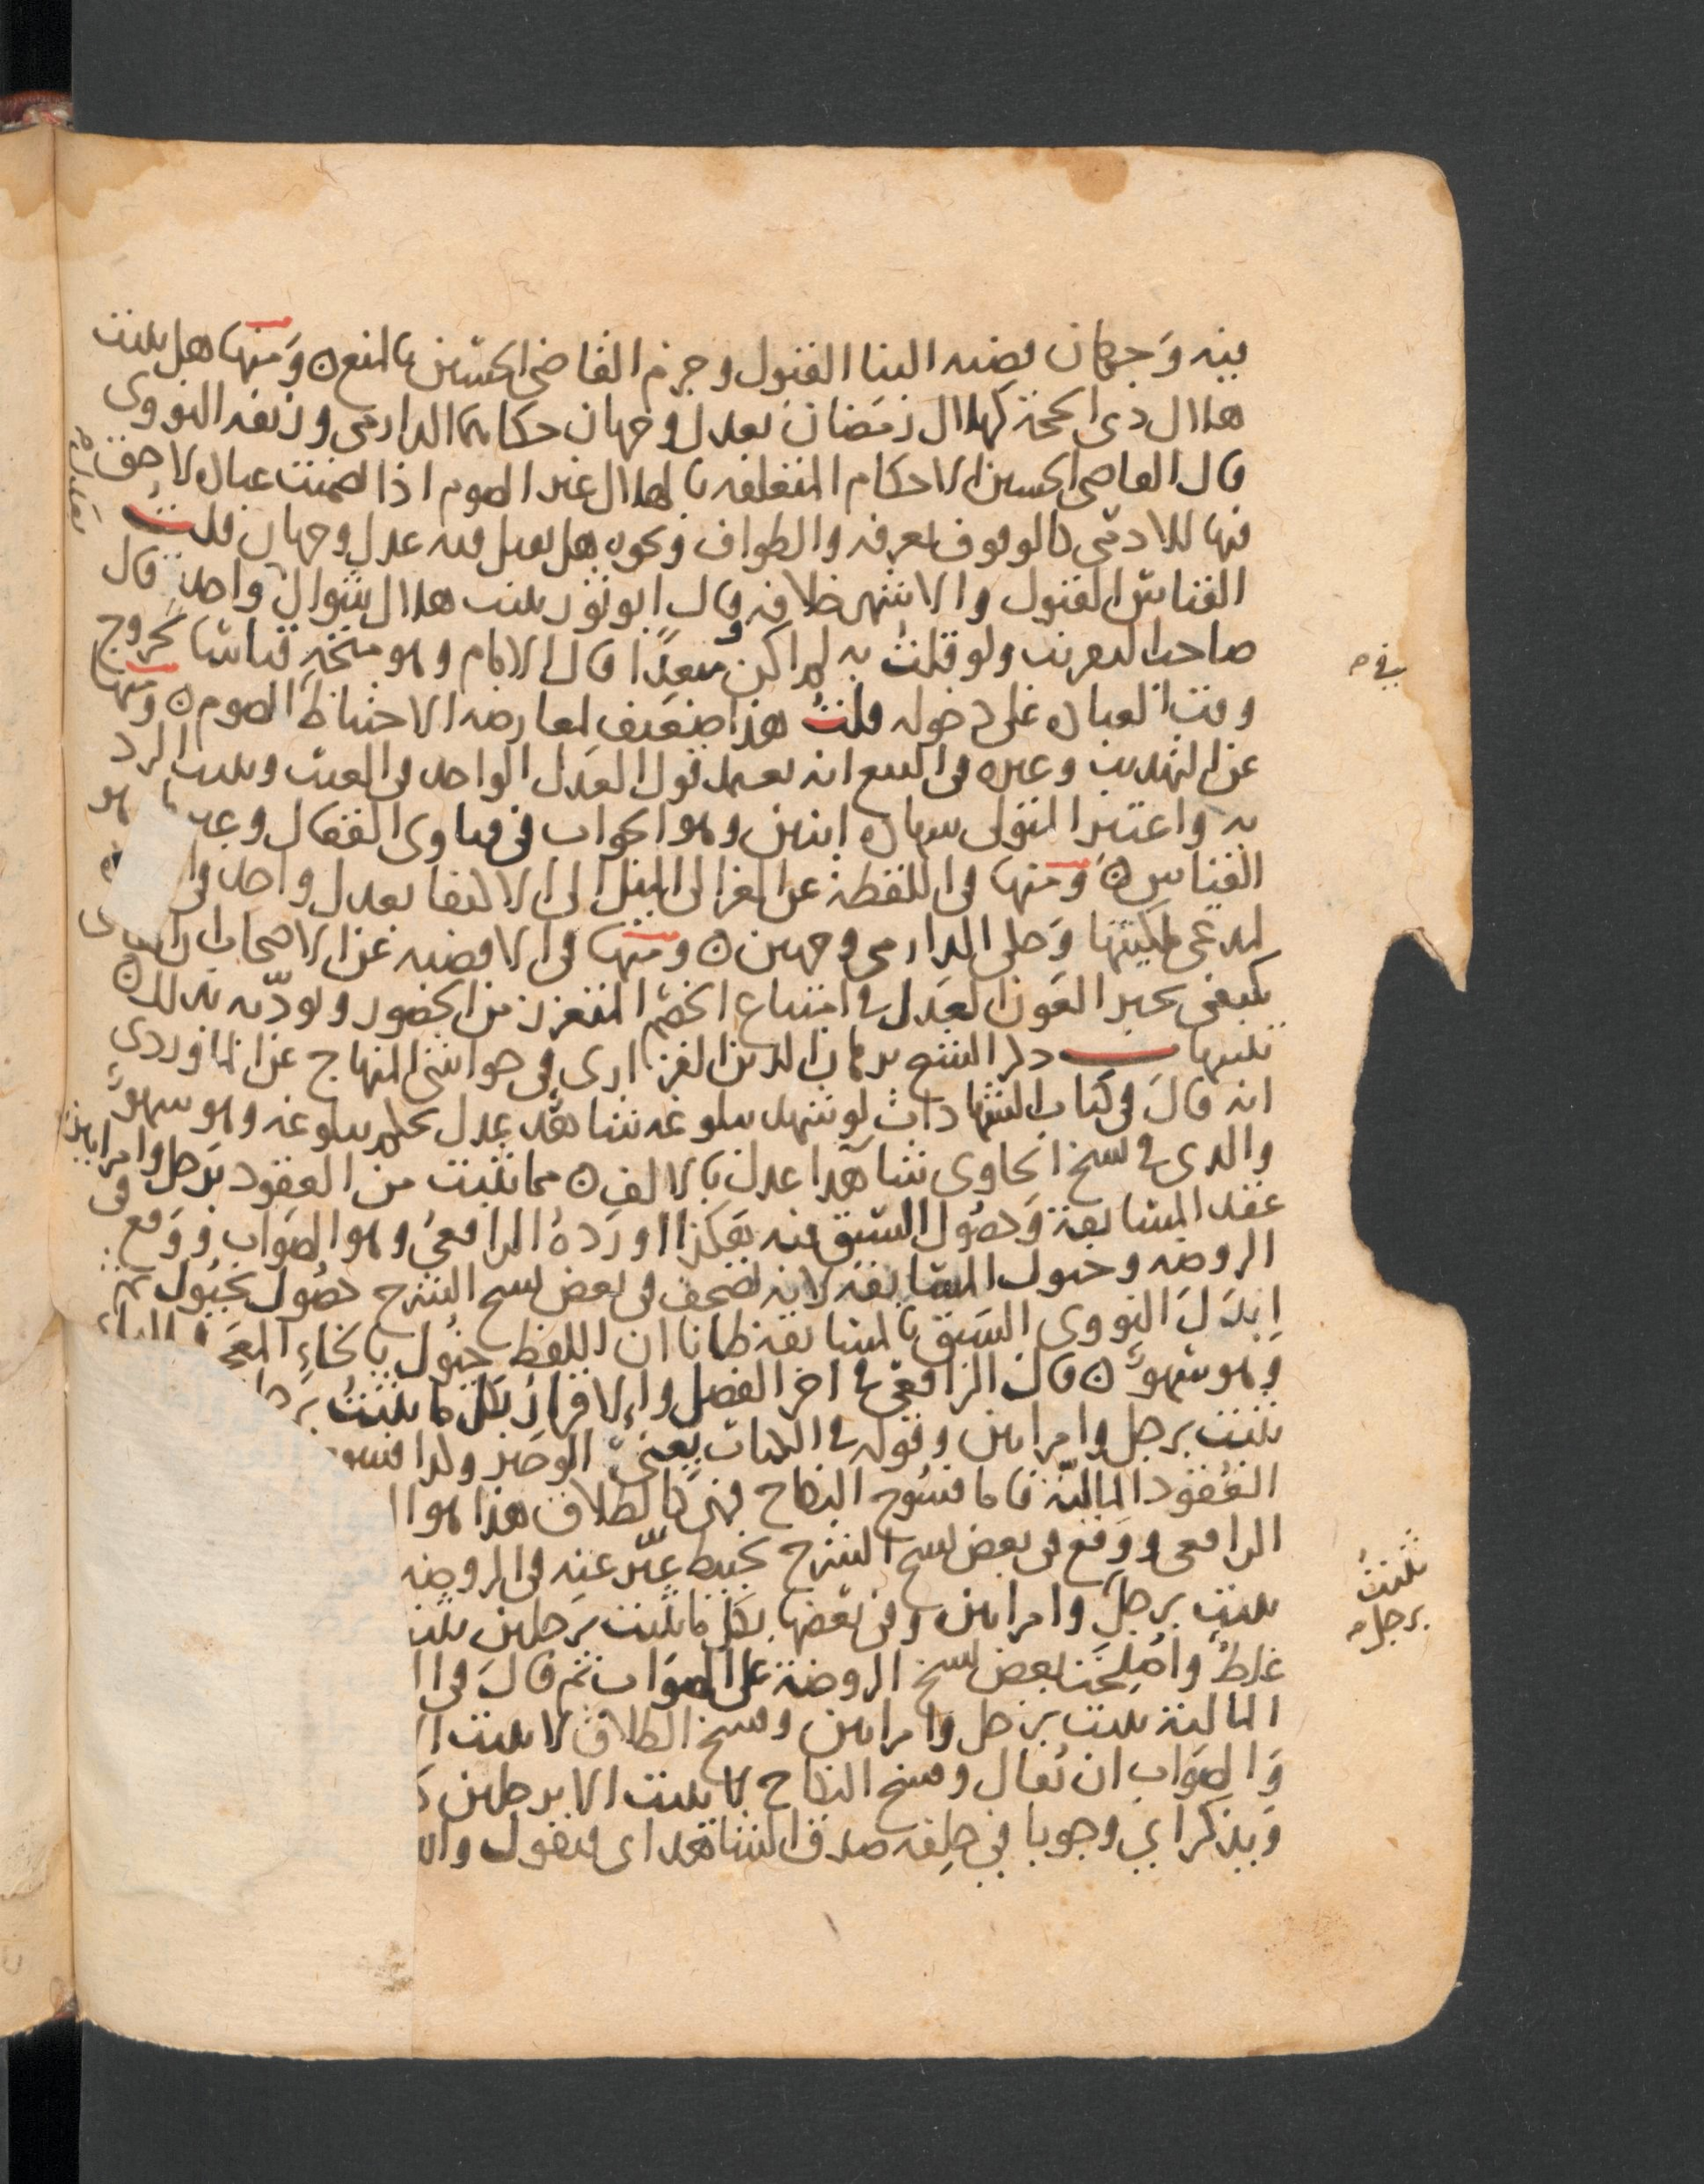 فيه وجهان قضية البنا القبول وجزم القاضي الحسين بالمنع ومنها هل يثبت
هلال ذي الحجة كهلال رمضان بعدل وجهان حكاهما الدارمي وزيفه النووي
قال القاضي الحسين الاحكام المتعلقة بالهلال غير الصوم اذا تضمنت عبادة لا حق
فيها للادمي كالوقوف بعرفة والطواف ونحوه هل يقبل فيه عدل وجهان قلت
القياس القبول والاشهر خلافه وقال ابو ثور يثبت هلال شوال واحد قال
صاحب التقريب ولو قلت به لم اكن مبعدا قال الامام وهو متجه قياسا لخروج
وقت العبادة على دخوله قلت هذا ضعيف لمعارضة الاحتياط الصوم ومنها
عن التهذيب وغيره في البيع انه يعمل قول العدل الواحد في العيب ويثبت الرد
به واعتبر المتولي شهادة اثنين وهو الجواب في فتاوى القفال وغيرها هو
القياس ومنها في اللقطة عن الغزالي الميل الى الاكتفا بعدل واحد في
لمدعي ملكيتها وحكى الدارمي وجهين ومنها في الاقضية عن الاصحاب ان
يكتفى بخبر العون العدل في امتناع الخصم المتعزز من الحضور ويؤدبه بذلك
تنبيهات ذكر الشيخ برهان الدين الفزاري في حواشي المنهاج عن الماوردي
انه قال في كتاب الشهادات لو شهد ببلوغه شاهد عدل حكم ببلوغه وهو سهو
والذي في نسخ الحاوي شاهدا عدل بالالف مما يثبت من العقود برجل وامراتين
عقد المسابقة وحصول السبق فيه هكذا اورده الرافعي وهو الصواب ووقع في
الروضة وخيول المسابقة لانه تصحف في بعض نسخ الشرح حصول بخيول ثم
ابدل النووي السبق بالمسابقة ظانا ان اللفظ خيول بالخاء المعجمة والياء
وهو سهو قال الرافعي في اخر الفصل والاقرار بكل ما يثبت برجل
يثبت برجل وامراتين وقوله في الكتاب يعني الوجيز وكذا فسوخ
العقود المالية فاما فسوخ النكاح فهي كالطلاق هذا هو
الرافعي ووقع في بعض نسخ الشرح تخبيط عبر عنه في الروضة
يثبت برجل وامراتين وفي بعضها بكل ما يثبت برجلين يثبت
غلط واصلحت بعض نسخ الروضة على الصواب ثم قال في
المالية يثبت برجل وامراتين وفسخ الطلاق لا يثبت
والصواب ان يقال وفسخ النكاح لا يثبت الا برجلين
ويذكر اي وجوبا في حلفه صدق الشاهد اي فيقول
بعد
في
يثبت
برجل